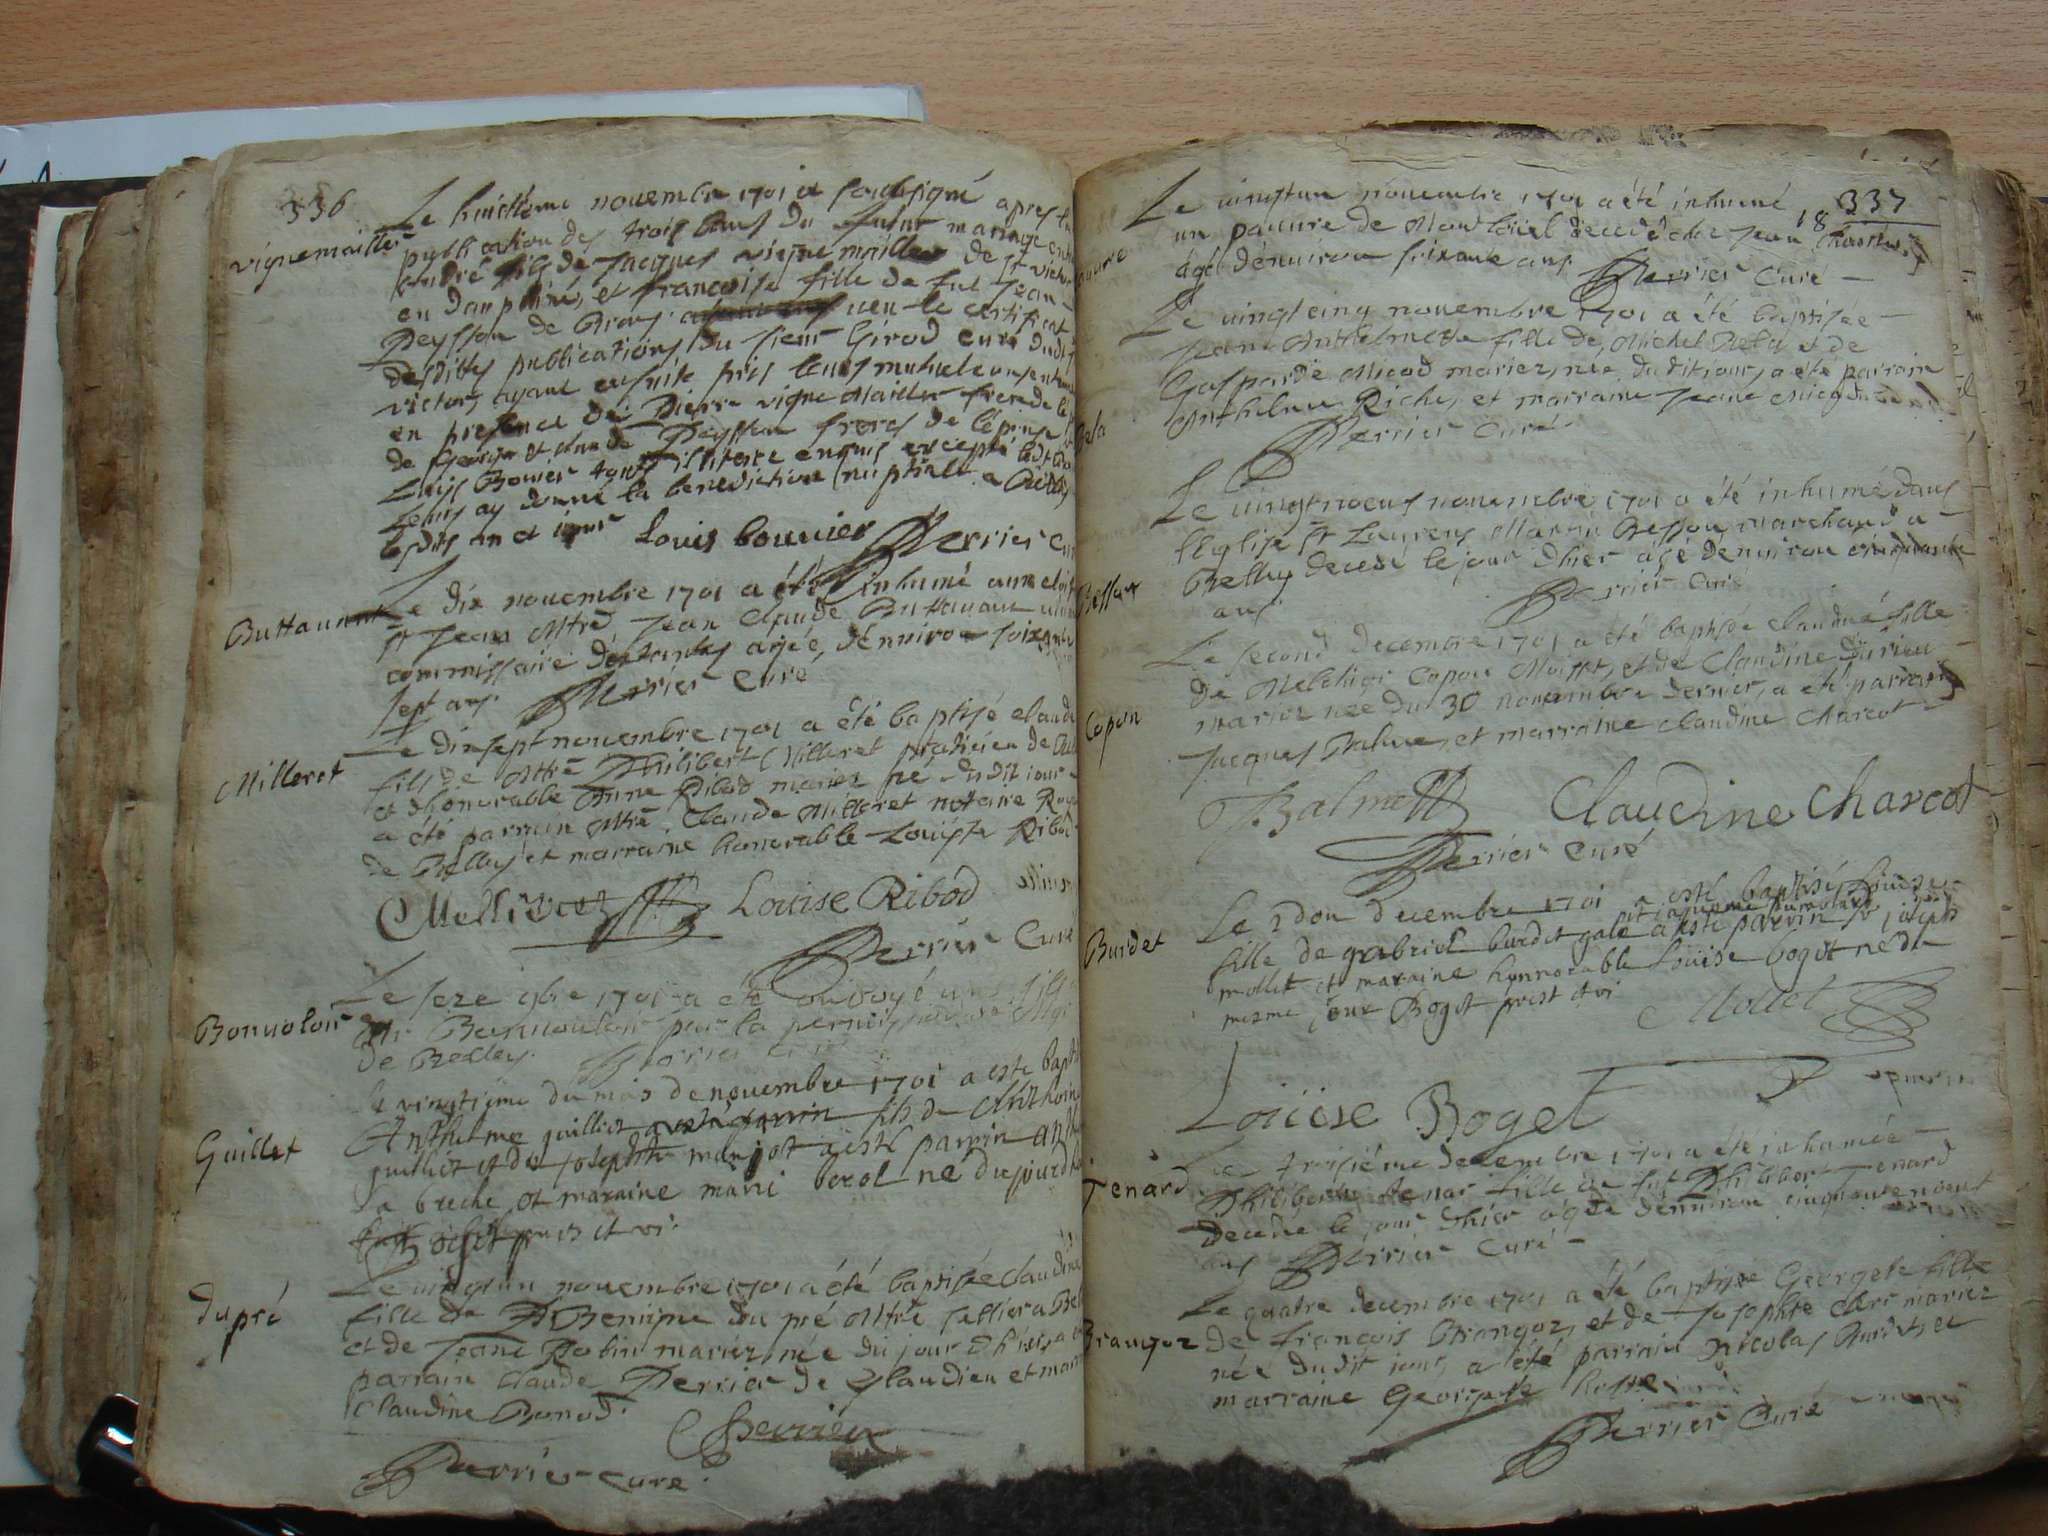 336
vignemaillet
Le huictieme novembre 1701 ie soubsigné apres la
publication des trois bans du futur mariage entre
andré fils de Jacques vigne maillet de St victor
en dauphiné, et francoise fille de fut Jean
Peysson de veu le certificat
desdittes publications du sieur Girod curé dudit St
victor, ayant ensuite pris leurs mutuel consentement
en presence de Pierre vigne Maillet frere de l'é
de George et claude Peysson freres de l'épouse
Louis Bouvier touts illiterés enquis excepté ledt Bou
Leurs ay donné la benediction nuptiale a Belley
lesdits an et jour Louis bouvier Perrier curé
Buttavant
Le dix novembre 1701 a été inhumé au cloistre
St Jean Mtre Jean Claude Buttavant
commissaire des tailles agée, d'environ soixante
sept ans. Perrier Curé
Milleret
Le dixsept novembre 1701 a été baptisé claude
fils de Mtre Philibert Milleret praticien de Bel
et d'honorable Anne Ribod mariez né dudit iour
a été parrain Mtre Claude Milleret notaire Royal
de Belley et marraine honorable Louise Ribod
Milleret Louise Ribod
Perrier Curé
Bonvoloir
Le seze 9bre 1701 a été ondoyé un fils
de Mr Bonvouloir par la permission de Mgr
de Belley. Perrier curé
Guillet
le vingtieme du mois de novembre 1701 a este baptisé
Anthelme guilliet a esté parrin fils de Anthoine
guilliet et de josephte marjot a esté parrin anthelme
la breche et maraine marie berol né du jourdhui
Boget prest et vi
Dupré
Le vingtun novembre 1701 a été baptisée Claudine
fille de Benigne du pré Mtre sellier a Bel
et de Jeane Robin mariez, née du jour d'hier, a été
parrain Claude Perrier de Glandieu et marr
Claudine Bonod.
CPerrier
Perrier curé.
337
18
Le vingtun novembre 1701 a été inhumé
un pauvre de decedé chez Jean
agé d'environ soixante ans. Perrier Curé
Bela
Le vingtcinq novembre 1701 a été baptisée
Jeane Anthelmette fille de Michel Bela et de
Gasparde Micod mariez, née dudit iour, a été parrain
Anthelme Riche, et marraine Jeane Micod
Perrier curé
Besson
Le vingtneuf novembre 1701 a été inhumé dans
l'église St Laurens Martin Besson marchand a
Belley decedé le jour d'hier agé d'environ cinquante
ans. Perrier Curé
Copon
Le second decembre 1701 a été baptisée claudine fille
de Melchior Copon Moisset, et de Claudine Durieu
mariez née du 30 novembre dernier, a été parrain
Jacques Balme, et marraine claudine Charcot
JBalme Claudine Charcot
Perrier curé
Burdet
Le 2 dou decembre 1701 a esté baptisé Louise
fille de gabriel burdet gale a esté parrin Sr joseph
mollet et maraine honnorable Louise boget né du
mesme jour Boget prest et vi
Mollet
Louise Boget
Tenard
Le troisieme decembre 1701 a été inhumée
Philiberte Tenar fille de fut Philibert Tenard
decedée le jour d'hier agée d'environ cinquante neuf
ans Perrier Curé
Brangoz
Le quatre decembre 1701 a été baptisée Georgete fille
de François Brangoz, et de Josephte Clerc mariez
née dudit iour, a été parrain Nicolas Burdet, et
marraine Georgete
Perrier Curé